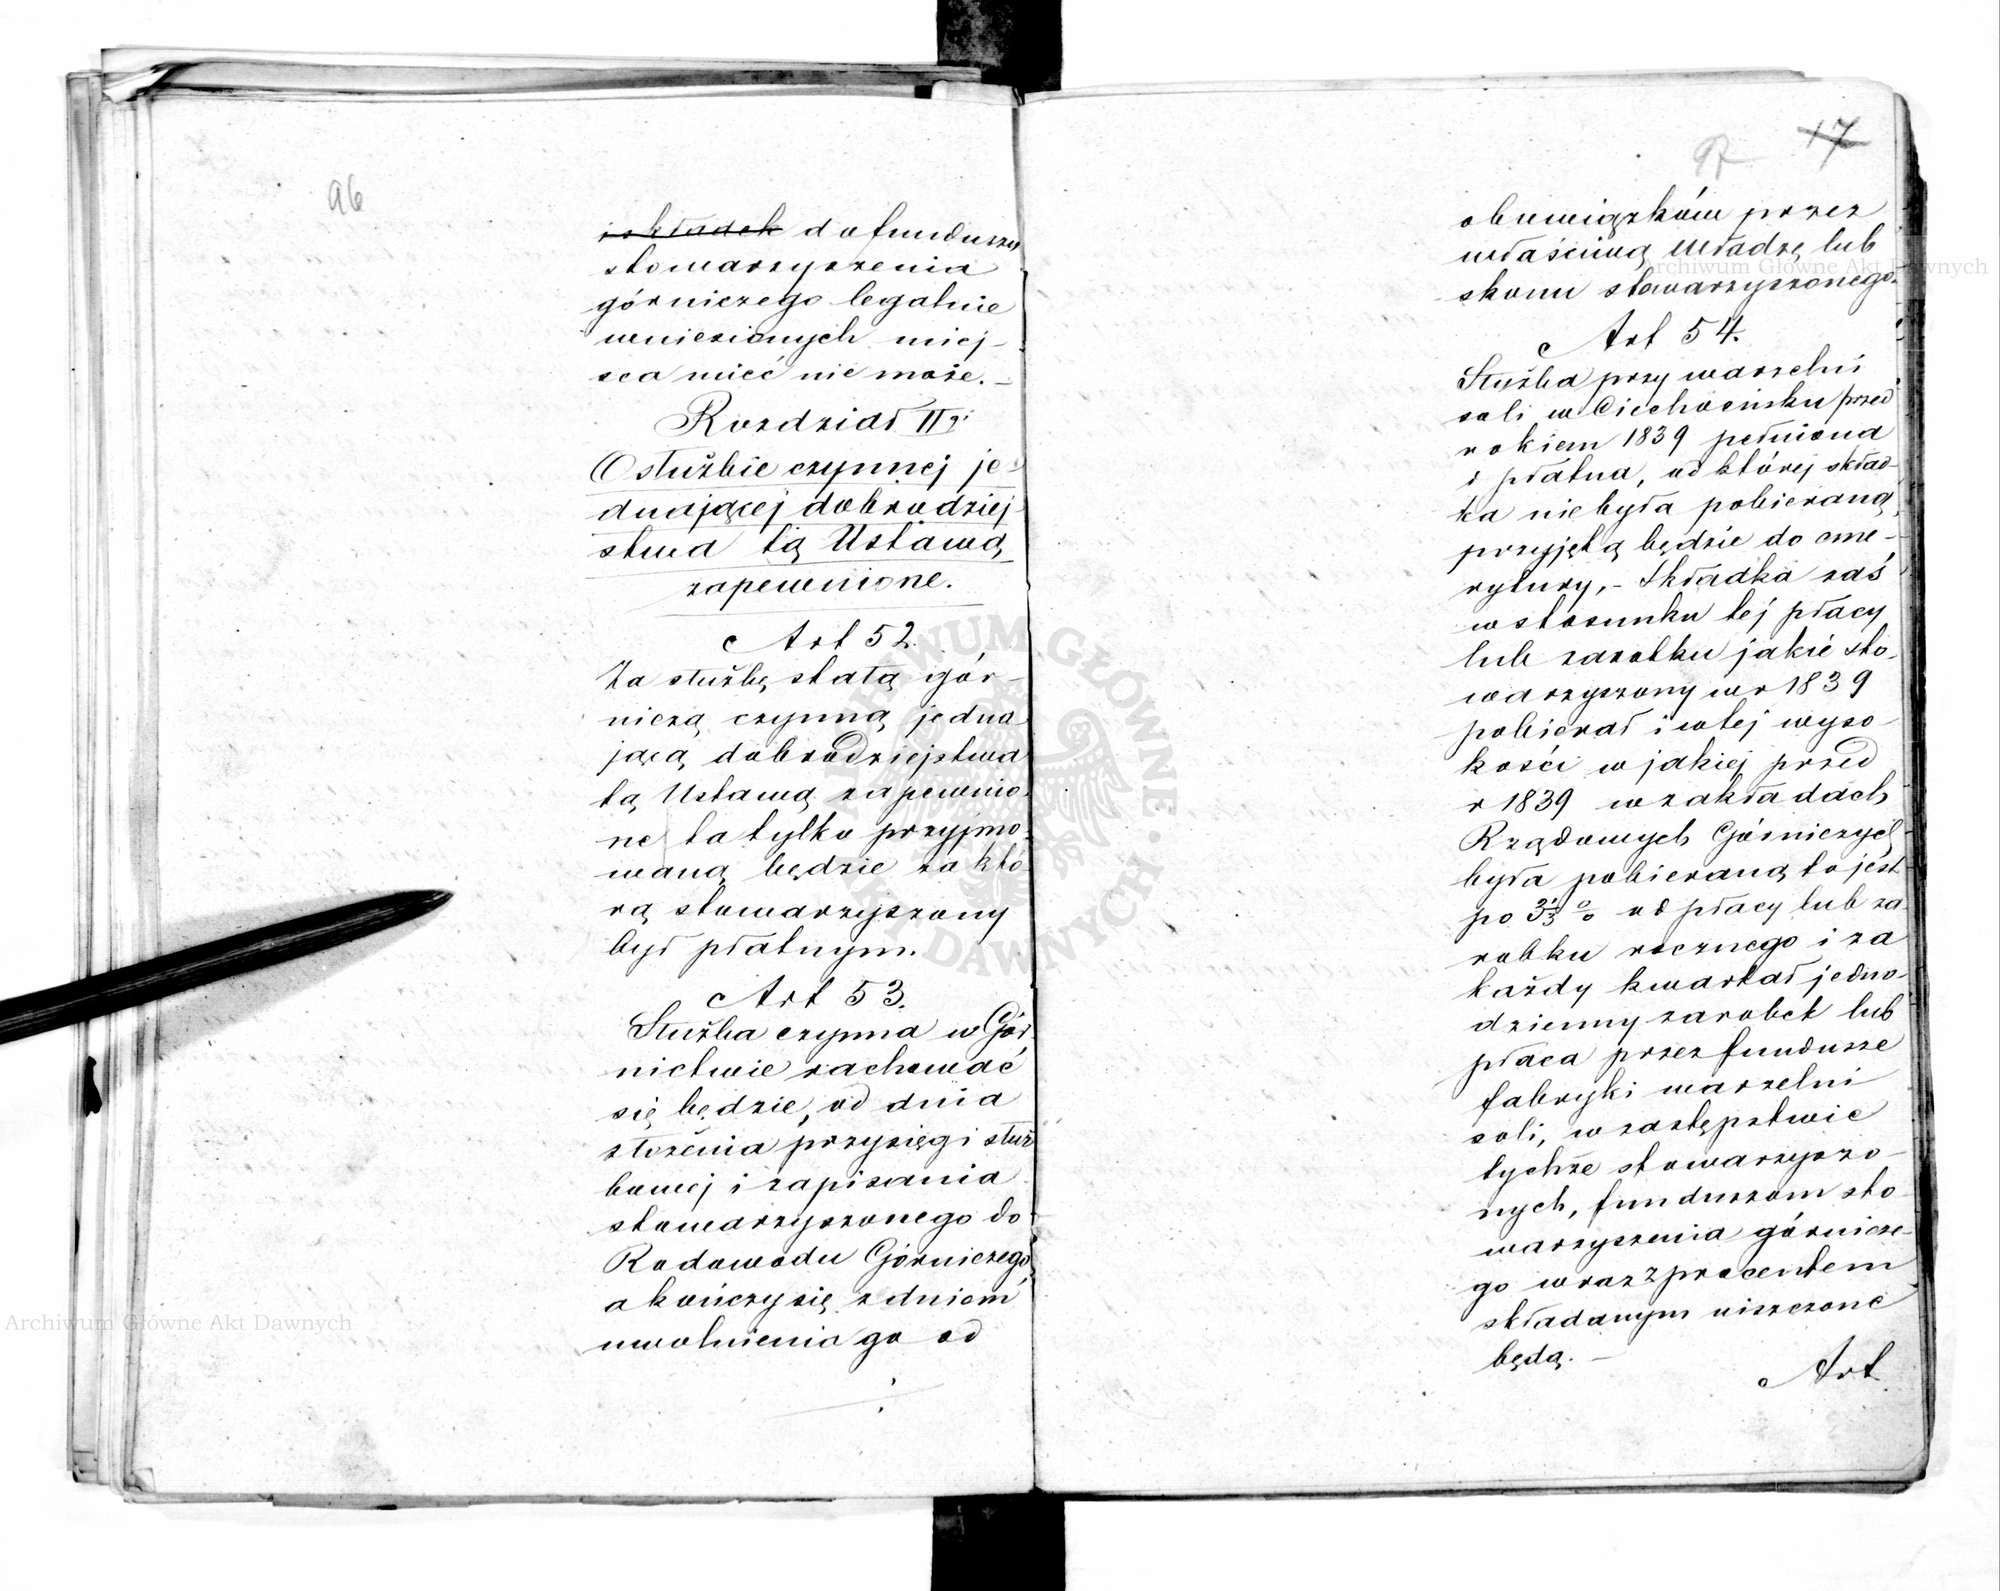 96
składek do funduszu
stowarzyszenia
górniczego legalnie
wniesionych miej-
sca mieć nie może. –
Rozdział II gi
O służbie czynnej je-
dnającej dobrodziej-
stwa tą Ustawą
zapewnione.
Art 52.
Za służbę stałą gór-
niczą czynną jedna
jącą dobrodziejstwa
tą Ustawą zapewnio-
ne ta tylko przyjmo-
waną będzie za któ-
rą stowarzyszony
był płatnym.
Art 53.
Służba czynna w Gór-
nictwie rachować
się będzie, od dnia
złożenia przysięgi służ
bowej i zapisania
stowarzyszonego do
Rodowodu Górniczego,
a kończy się z dniem
uwolnienia go od
97 17
obowiązków przez
właściwą Władzę lub
skonu stowarzyszonego.
Art 54.
Służba przy warzelni
soli w Ciechocinku przed
rokiem 1839 pełniona
i płatna, od której skład-
ka nie była pobieraną,
przyjętą będzie do eme-
rytury, – Składka zaś
w stosunku tej płacy
lub zarobku jakie sto-
warzyszony w r 1839
pobierał i w tej wyso-
kości w jakiej przed
r 1839 w zakładach
Rządowych Górniczych
była pobieraną to jest
po 3⅓ % od płacy lub za-
robku rocznego i za
każdy kwartał jedno-
dzienny zarobek lub
płaca przez fundusze
fabryki warzelni
soli, w zastępstwie
tychże stowarzyszo-
nych, funduszom sto-
warzyszenia górnicze-
go wraz z procentem
składanym uiszczone
będą. –
Art
Archiwum Główne Akt Dawnych
Archiwum Główne Akt Dawnych
ARCHIWUM GŁÓWNE AKT DAWNYCH